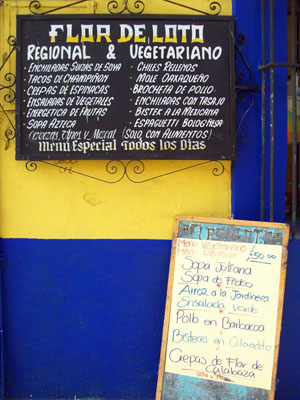 FLOR DE LOTO
REGIONAL & VEGETARIANO
• ENCHILADAS SUIZAS DE SOYA
• TACOS DE CHAMPIÑON
• CREPAS DE ESPINACAS
• ENSALADAS DE VEGETALES
• ENERGETICA DE FRUTAS
• SOPA AZTECA
• CHILES RELLENOS
• MOLE OAXAQUEÑO
• BROCHETA DE POLLO
• ENCHILADAS CON TASAJO
• BISTEK A LA MEXICANA
• ESPAGUETTI BOLOGNESA
Cervezas, Vinos y Mezcal (SOLO CON ALIMENTOS)
Menú Especial Todos los Días
Menu Vegetariano
Menu Regional
$50.00
Sopa Juliana
Sopa de Fideo
Arroz a la Jardinera
Ensalada Verde
Pollo en Barbacoa
Bisteces en
Crepas de Flor de
Calabaza